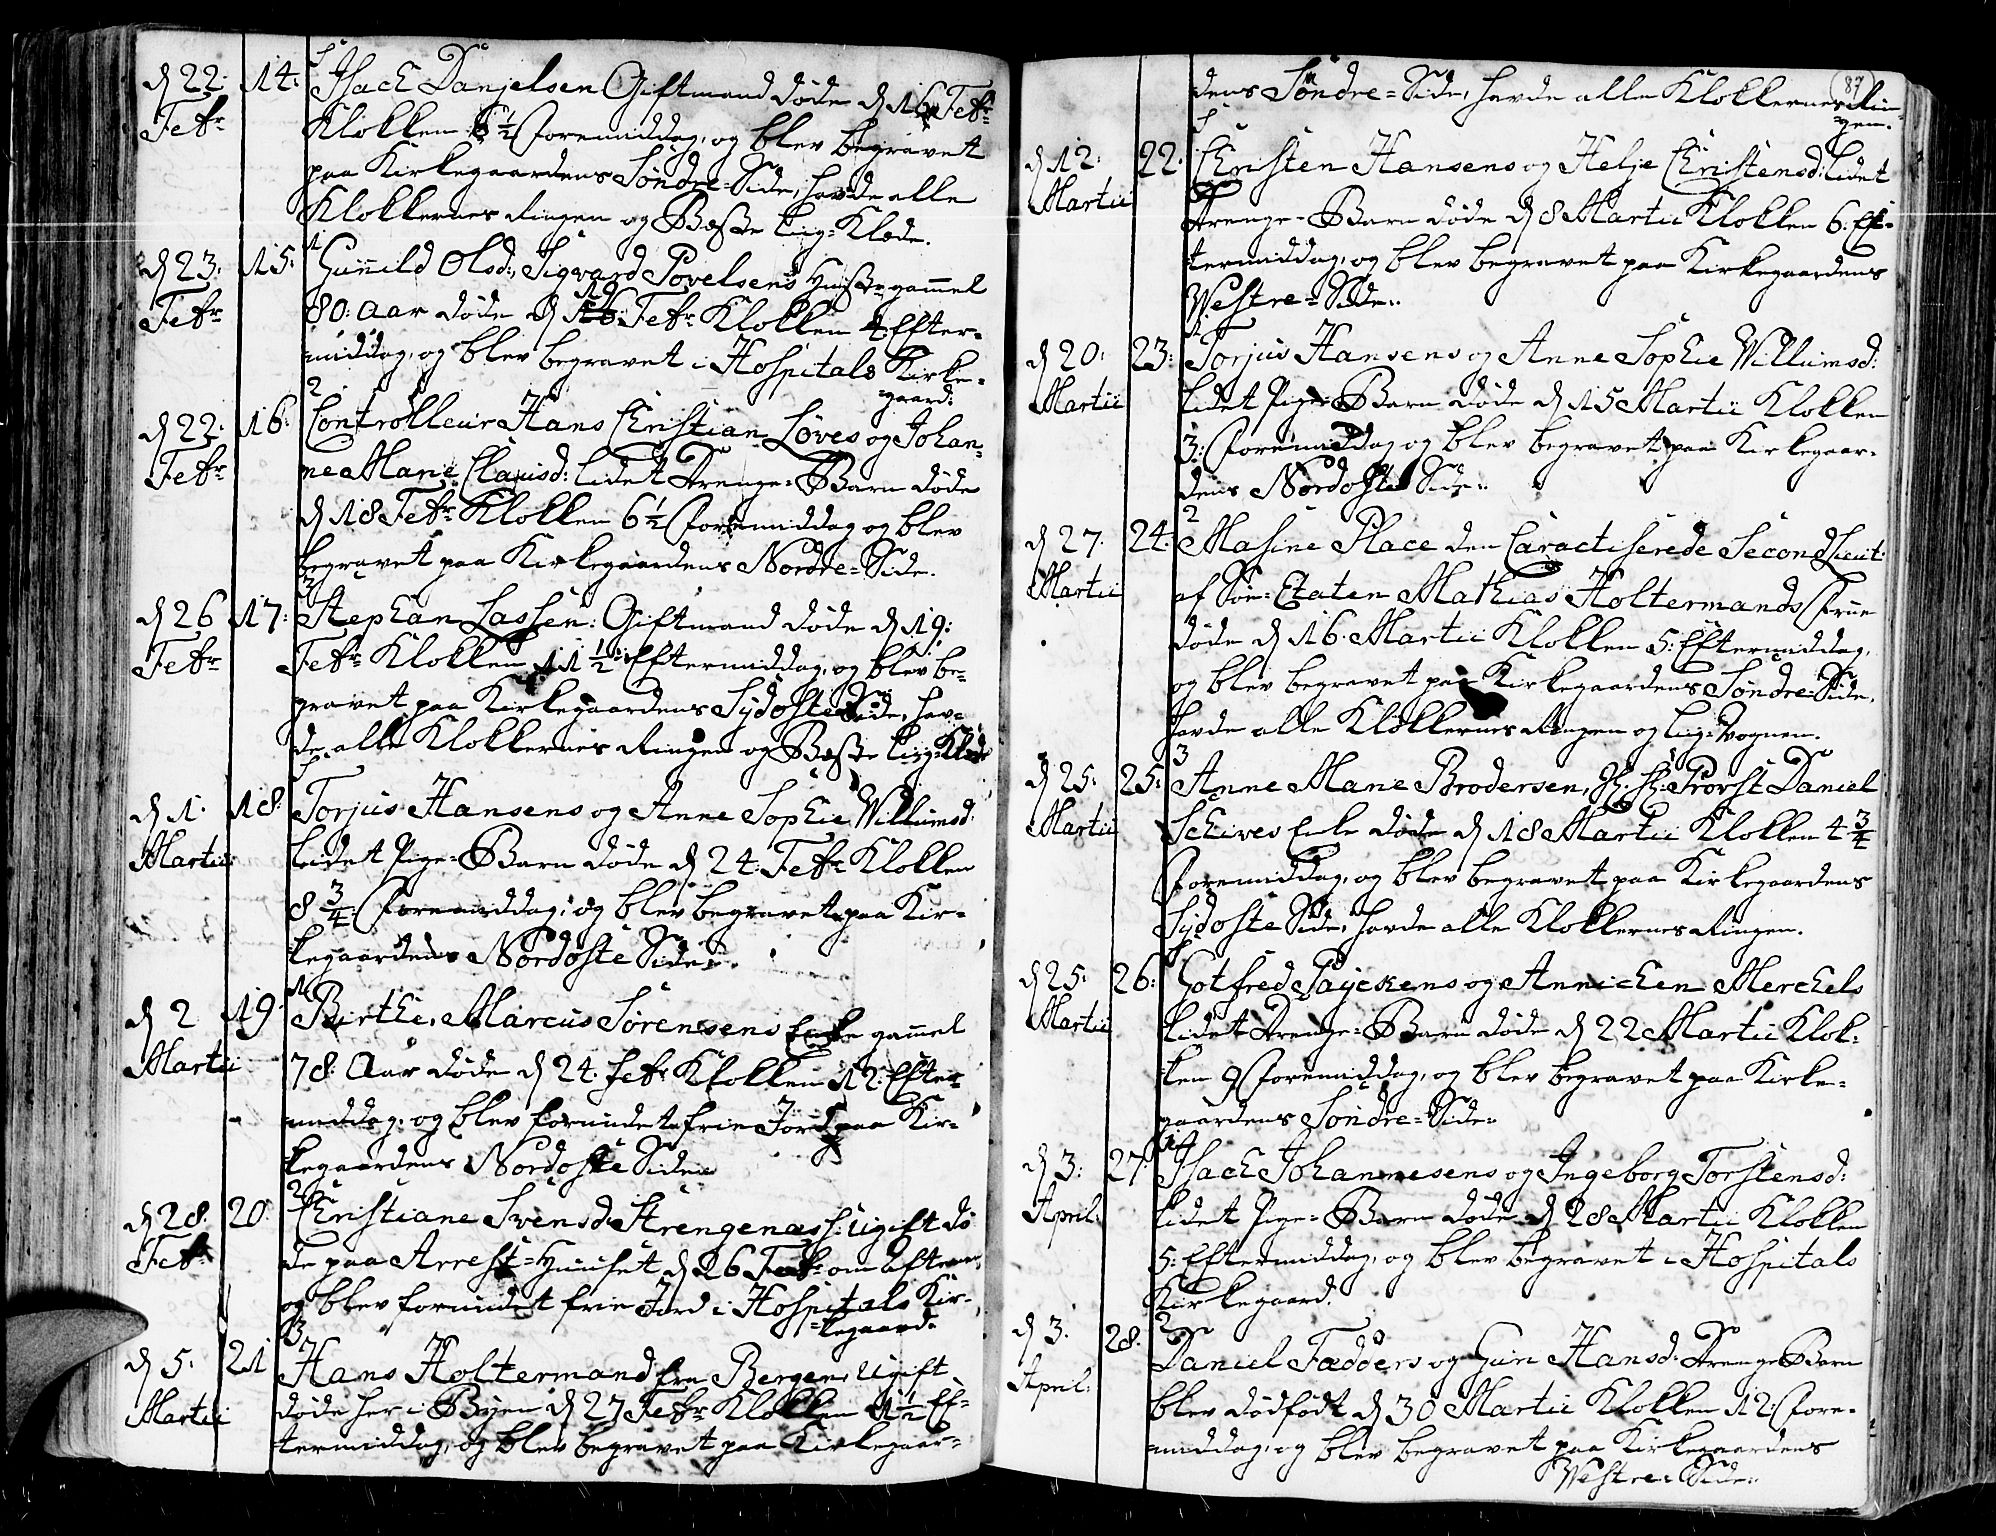 d 22: Febr 14: Isach Danjelsen Giftmand døde d 16 Febr
Klokken 6½ Formiddag, og blev begravet
paa Kirkegaardens Søndre-Side, havde alle
Klokkernes Ringen og Beste Liig-Klæde.
d 23: Febr 15: Gunild Olsd:, Sigvard Povelsens Hustr. gammel
80: Aar døde d 19 Febr Klokken 4: Efter-
middag, og blev begravet i Hospitals Kirke-
gaard:
d 22: Febr 16: Controlleur Hans Christian Loves og Johan-
ne Marie Clausd: lidet Drenge-Barn døde
d 18 Febr Klokken 6½ Formiddag og blev
begravet paa Kirkegaardens Nordre-Side.
d 26 Febr 17: Stephan Lassen: Giftmand døde d 19:
Febr Klokken 11½: Eftermiddag, og blev be-
gravet paa Kirkegaardens Sydoste Side, hav-
de alle Klokkernes Ringen og Beste Liig-Klæde
d 1: Martii 18: Torjus Hansens og Anne Sophie Willumsd:
lidet Pige-Barn døde d 24: Febr Klokken
8¾: Formiddag, og blev begravet paa Kir-
kegaardens Nordoste Side.
d 2 Martii 19: Birthe, Marcus Sørensens Enke gammel
78: Aar døde d 24: Febr Klokken 12: Efter-
middag, og blev forundet frie Jord paa Kir-
kegaardens Nordoste Side.
d 28: Febr 20: Christiane Svensd: ugift dø
de paa Arrest-Huuset d 26 Febr om Aftenen,
og blev forundet frie Jord i Hospitals Kir-
kegaard.
d 5: Martii 21 Hans Holtermand fra Bergen, Ugift
døde her i Byen d 27 Febr Klokken 1½ Ef-
termiddag, og blev begravet paa Kirkegaar-
87
dens Søndre-Side, havde alle Klokkernes Rin-
gen.
d 12: Martii 22: Christen Hansens og Helje Christensd: lidet
Drenge-Barn døde d 8 Martii Klokken 6: Ef-
termiddag, og blev begravet paa Kirkegaardens
Westre-Side.
d 20: Martii 23: Torjus Hansens og Anne Sophie Willumsd:
lidet Pige-Barn døde d 15 Martii Klokken
3: Formiddag og blev begravet paa Kirkegaar-
dens Nordoste Side.
d 27. Martii 24: Masine Place den Caractiserede Second Lieut:
af Søe-Etaten Mathias Holtermands Frue
døde d 16. Martii Klokken 5: Eftermiddag,
og blev begravet paa Kirkegaardens Søndre-Side,
havde alle Klokkernes Ringen og Liig-Vognen.
d 25: Martii 25: Anne Marie Brodersen, Provst Daniel
Schives Enke døde d 18 Martii Klokken 4¾
Formiddag, og blev begravet paa Kirkegaardens
Sydoste Side, havde alle Klokkernes Ringen.
d 25: Martii 26: Gotfred Paÿckens og Annichen Merchels
lidet Drenge-Barn døde d 22 Martii Klok-
ken 9 Formiddag, og blev begravet paa Kirke-
gaardens Søndre-Side.
d 3: April: 27: Isach Johannesens og Ingeborg Torstensd:
lidet Pige-Barn døde d 28 Martii Klokken
5: Eftermiddag, og blev begravet i Hospitals
Kirkegaard.
d 3. April: 28: Daniel Fædders og Guri Hansd: Drenge Barn
blev dødfødt d 30 Martii Klokken 12: For-
middag, og blev begravet paa Kirkegaardens
Westre-Side.